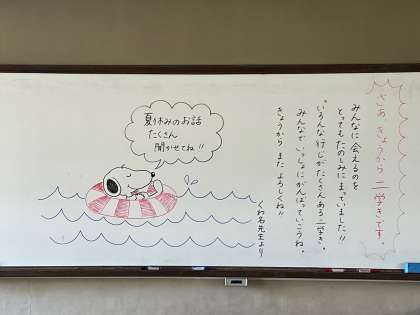 さあ、きょうから 二学きです。
みんなに 会えるのを
とっても たのしみに まっていました!!
いろんな 行じが たくさん ある 二学き。
みんなで いっしょに がんばって いこうね。
きょうから また よろしくね!!
くわ名先生より
夏休みのお話
たくさん
聞かせてね!!